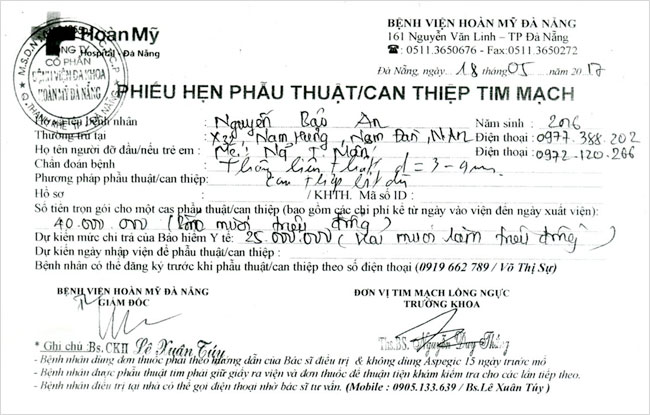 Hoàn Mỹ
Hospital - Đà Nẵng
CÔNG TY
CỔ PHẦN
BỆNH VIỆN ĐA KHOA
HOÀN MỸ ĐÀ NẴNG
BỆNH VIỆN HOÀN MỸ ĐÀ NẴNG
161 Nguyễn Văn Linh – TP Đà Nẵng
☎: 0511.3650676 - Fax:0511.3650272
Đà Nẵng, ngày 18 tháng 05 năm 2017
PHIẾU HẸN PHẪU THUẬT/CAN THIỆP TIM MẠCH
Họ và tên bệnh nhân : Nguyễn Bảo An Năm sinh : 2016
Thường trú tại : Nam Hưng, Nam Đàn, N.An Điện thoại : 0977.388.202
Họ tên người đỡ đầu/nếu trẻ em : Mẹ: Điện thoại : 0972-120-266
Chẩn đoán bệnh : Thông liên thất d = 3 - 4mm
Phương pháp phẫu thuật/can thiệp : Can thiệp bít dù
Hồ sơ : / KHTH. Mã số ID :
Số tiền trọn gói cho một cas phẫu thuật/can thiệp (bao gồm các chi phí kể từ ngày vào viện đến ngày xuất viện):
40.000.000 (Bốn mươi triệu đồng)
Dự kiến mức chi trả của Bảo hiểm Y tế: 25.000.000 (Hai mươi lăm triệu đồng)
Dự kiến ngày nhập viện để phẫu thuật/can thiệp :
Bệnh nhân có thể đăng ký trước khi phẫu thuật/can thiệp theo số điện thoại (0919 662 789 / Võ Thị Sự)
BỆNH VIỆN HOÀN MỸ ĐÀ NẴNG
GIÁM ĐỐC
ĐƠN VỊ TIM MẠCH LỒNG NGỰC
TRƯỞNG KHOA
* Ghi chú : Bs.CKII Lê Xuân Túy
Ths.BS. Nguyễn Duy Thắng
- Bệnh nhân dùng đơn thuốc phải theo hướng dẫn của Bác sĩ điều trị & không dùng Aspegic 15 ngày trước mổ
- Bệnh nhân được phẫu thuật tim phải giữ giấy ra viện và đơn thuốc để thuận tiện khám kiểm tra cho các lần tiếp theo.
- Bệnh nhân điều trị tại nhà có thể gọi điện thoại nhờ bác sĩ tư vấn. (Mobile : 0905.133.639 / Bs.Lê Xuân Túy )